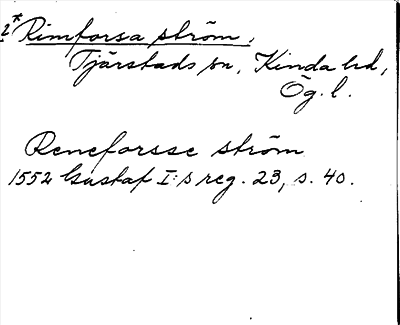 2* Rimforsa ström,
Tjärstads sn, Kinda hd,
Ög. l.
Reneforsse ström
1552 Gustaf I:s reg. 23, s. 40.